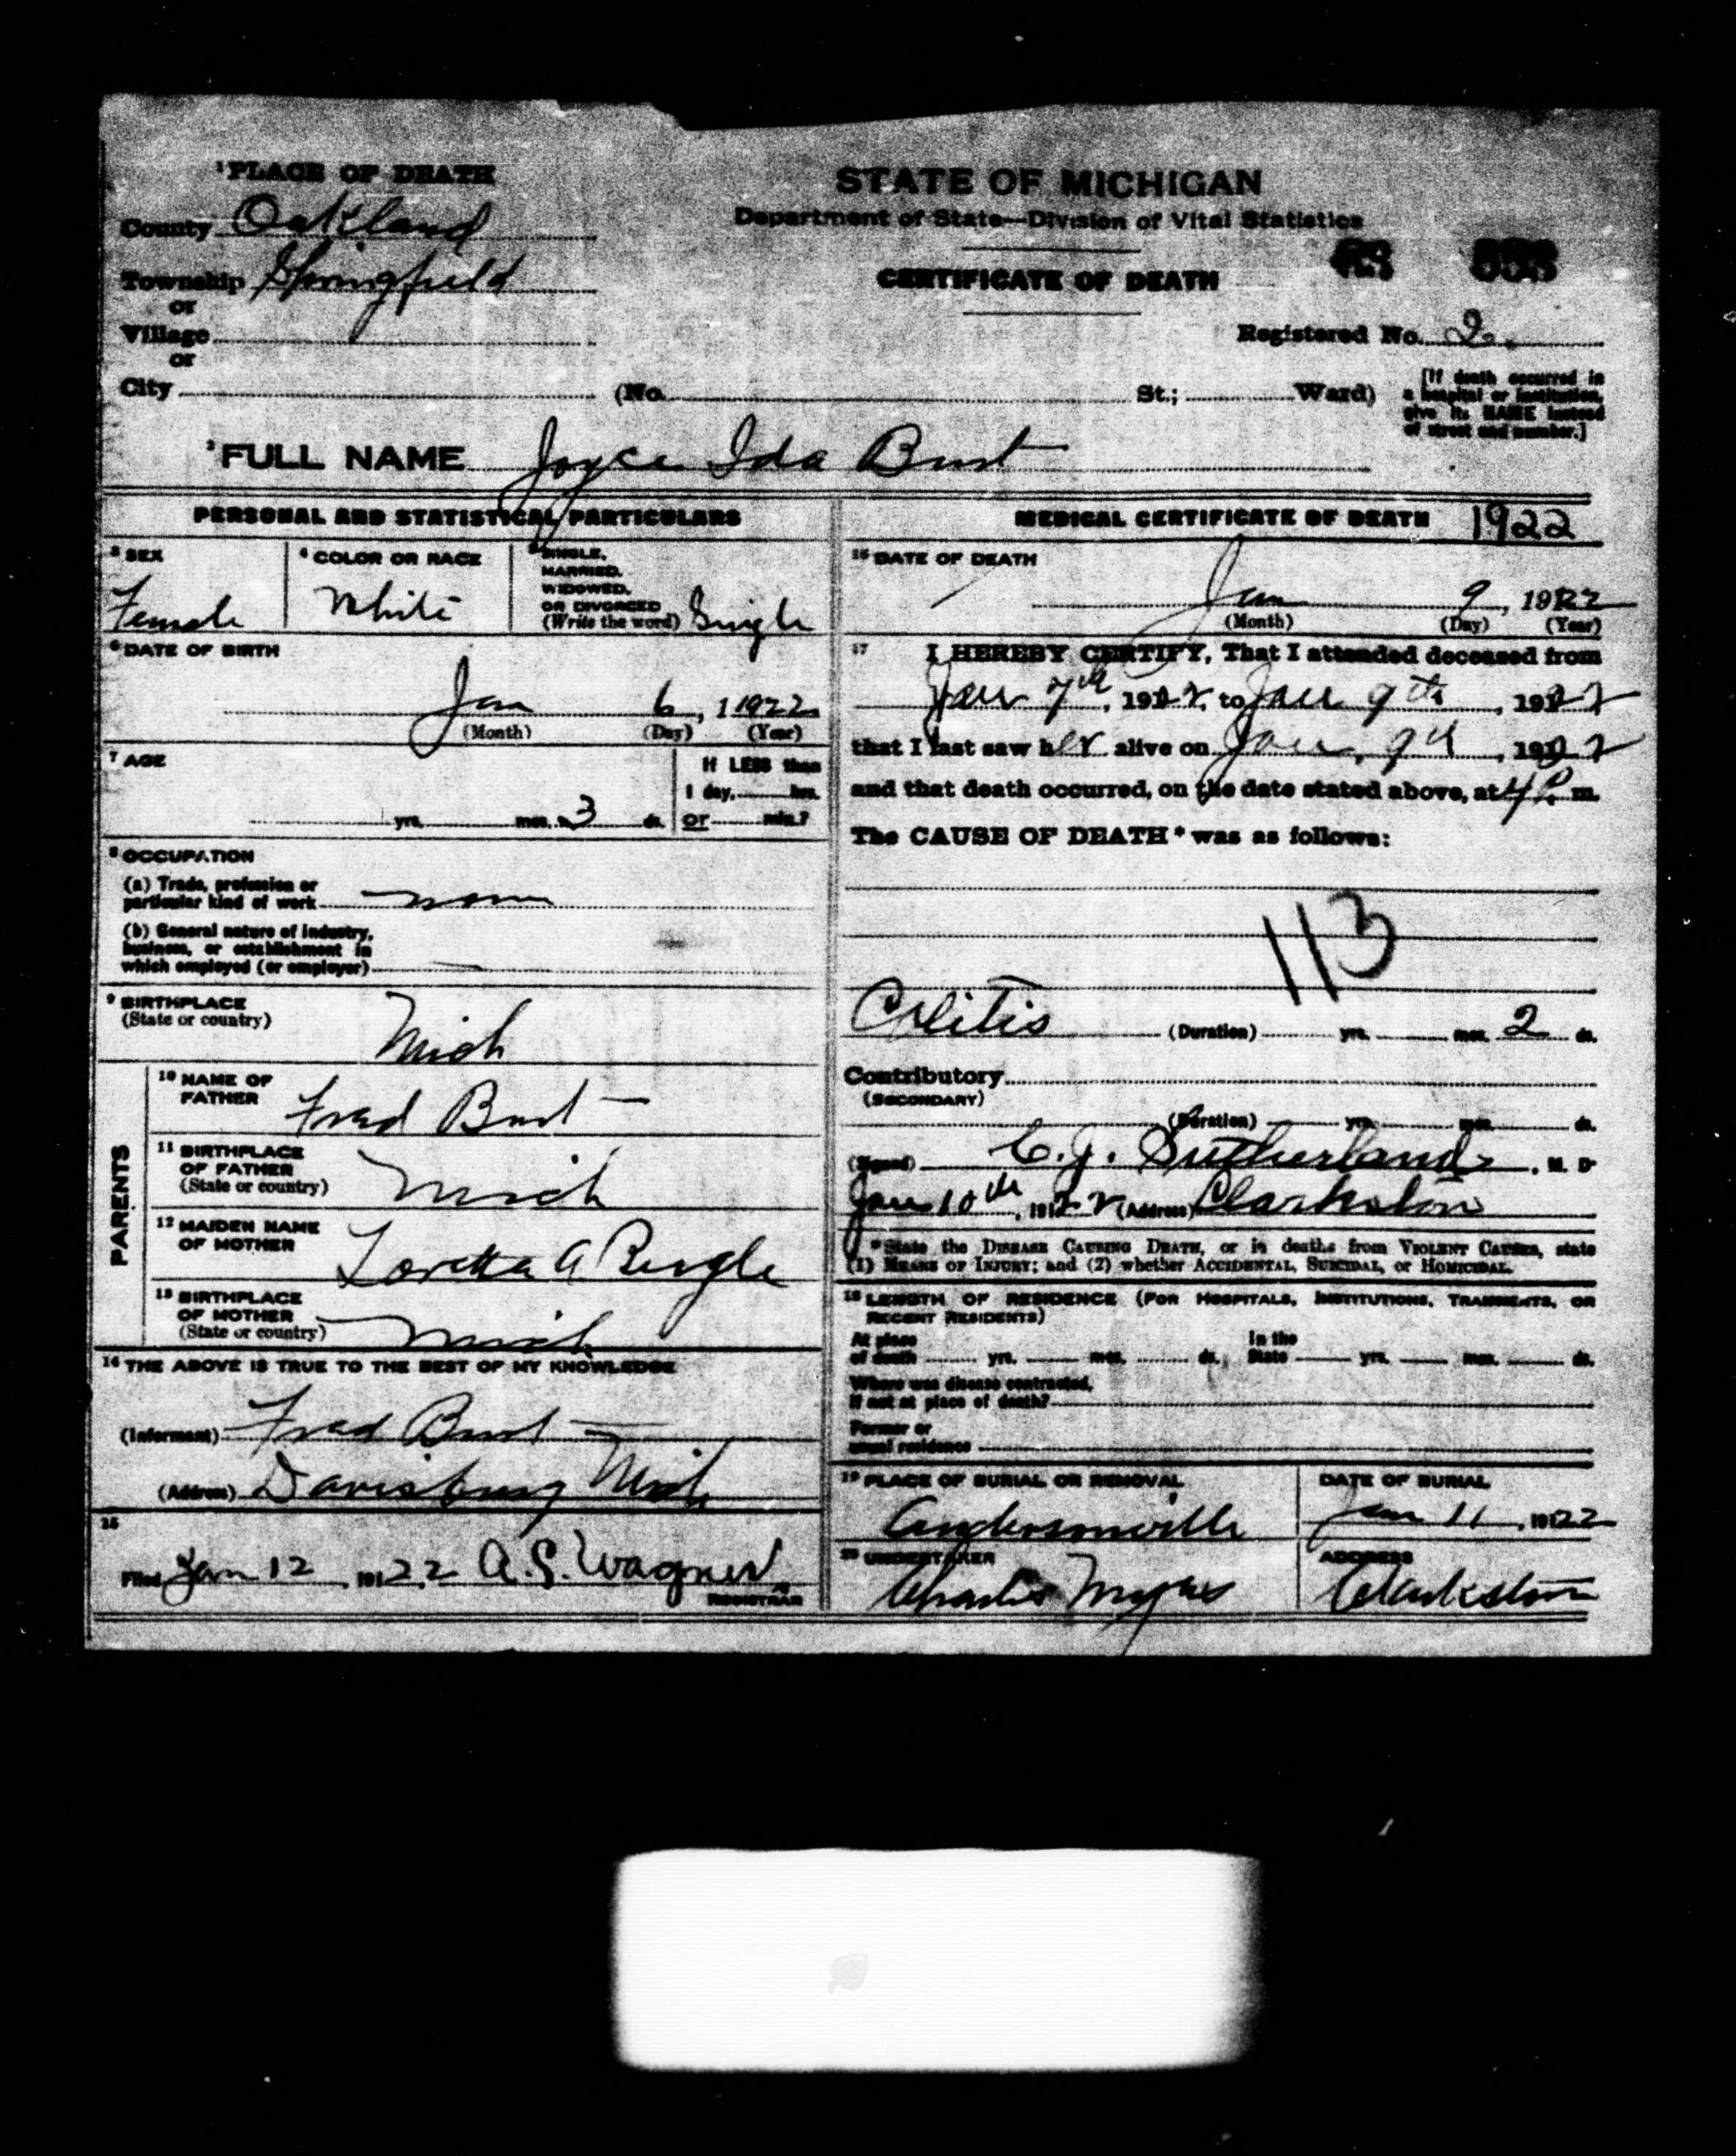 ¹PLACE OF DEATH
County Oakland
Township Springfield
or
Village
or
City (No. St.; Ward)
STATE OF MICHIGAN
Department of State—Division of Vital Statistics
CERTIFICATE OF DEATH
Registered No. 2.
[If death occurred in
a hospital or institution,
give its NAME instead
of street and number.]
²FULL NAME Joyce Ida Burt
PERSONAL AND STATISTICAL PARTICULARS
³ SEX
Female
⁴ COLOR OR RACE
White
⁵ SINGLE,
MARRIED,
WIDOWED,
OR DIVORCED
(Write the word) Single
⁶ DATE OF BIRTH
Jan 6, 1 1922
(Month) (Day) (Year)
⁷ AGE
If LESS than
1 day, hrs.
yrs. mos. 3 ds. or min.?
⁸ OCCUPATION
(a) Trade, profession or
particular kind of work none
(b) General nature of industry,
business, or establishment in
which employed (or employer)
⁹ BIRTHPLACE
(State or country)
Mich
PARENTS
¹⁰ NAME OF
FATHER Fred Burt
¹¹ BIRTHPLACE
OF FATHER
(State or country) Mich
¹² MAIDEN NAME
OF MOTHER Loretta A
¹³ BIRTHPLACE
OF MOTHER
(State or country) Mich
¹⁴ THE ABOVE IS TRUE TO THE BEST OF MY KNOWLEDGE
(Informant) Fred Burt
(Address) Davisburg Mich
¹⁵
Filed Jan 12, 1922 A.S. Wagner
REGISTRAR
MEDICAL CERTIFICATE OF DEATH 1922
¹⁶ DATE OF DEATH
Jan 9, 1922
(Month) (Day) (Year)
¹⁷ I HEREBY CERTIFY, That I attended deceased from
Jan 7th, 1922, to Jan 9th, 1922
that I last saw her alive on Jan, 9th, 1922
and that death occurred, on the date stated above, at 4 P. m.
The CAUSE OF DEATH* was as follows:
113
Colitis (Duration) yrs. mos. 2 ds.
Contributory
(SECONDARY)
(Duration) yrs. mos. ds.
(Signed) C.J. Sutherland, M. D
Jan 10th, 1922 (Address) Clarkston
*State the DISEASE CAUSING DEATH, or in deaths from VIOLENT CAUSES, state
(1) MEANS OF INJURY; and (2) whether ACCIDENTAL, SUICIDAL, or HOMICIDAL.
¹⁸ LENGTH OF RESIDENCE (FOR HOSPITALS, INSTITUTIONS, TRANSIENTS, OR
RECENT RESIDENTS)
At place
of death yrs. mos. ds.
In the
State yrs. mos. ds.
Where was disease contracted,
if not at place of death?
Former or
usual residence
¹⁹ PLACE OF BURIAL OR REMOVAL
Andersonville
DATE OF BURIAL
Jan 11, 1922
²⁰ UNDERTAKER
Charles Myers
ADDRESS
Clarkston